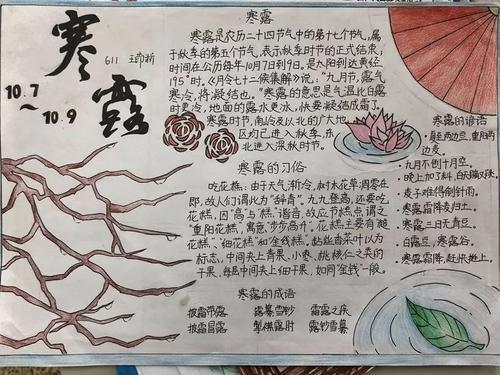 寒露
611
10.7
~
10.9
寒露
寒露是农历二十四节气中的第十七个节气,属
于秋季的第五个节气,表示秋季时节的正式结束;
时间在公历每年10月7日到9日。是太阳到达黄经
195°时。《月令七十二候集解》说:“九月节,露气
寒冷,将凝结也。”寒露的意思是气温比白露
时更冷,地面的露水更冰,快要凝结成霜了。
寒露时节,南岭及以北的广大地
区均已进入秋季,东
北进入深秋时节。
寒露的习俗
吃花糕:由于天气渐冷,树木花草凋零在
即,故人们谓此为“辞青”。九九登高,还要吃
花糕,因“高”与“糕”谐音,故应节糕点谓之
“重阳花糕”,寓意“步步高升”。花糕主要有“糙
花糕”、“细花糕”和“金钱糕”。粘些香菜叶以为
标志,中间夹上青果、小枣、桃核仁之类的
干果,每层中间夹上细干果,如同“金钱”一般。
寒露的成语
披霜带露 露纂雪钞 霜露之疾
披霜冒露 犁牛露肘 露钞雪纂
寒露的谚语
·九月不倒十月空。
·晚上加了料,
·麦子难得倒针雨。
·寒露霜降麦归土。
·寒露三日无青豆。
·白露豆,寒露谷。
·寒露霜降,赶快抛上。